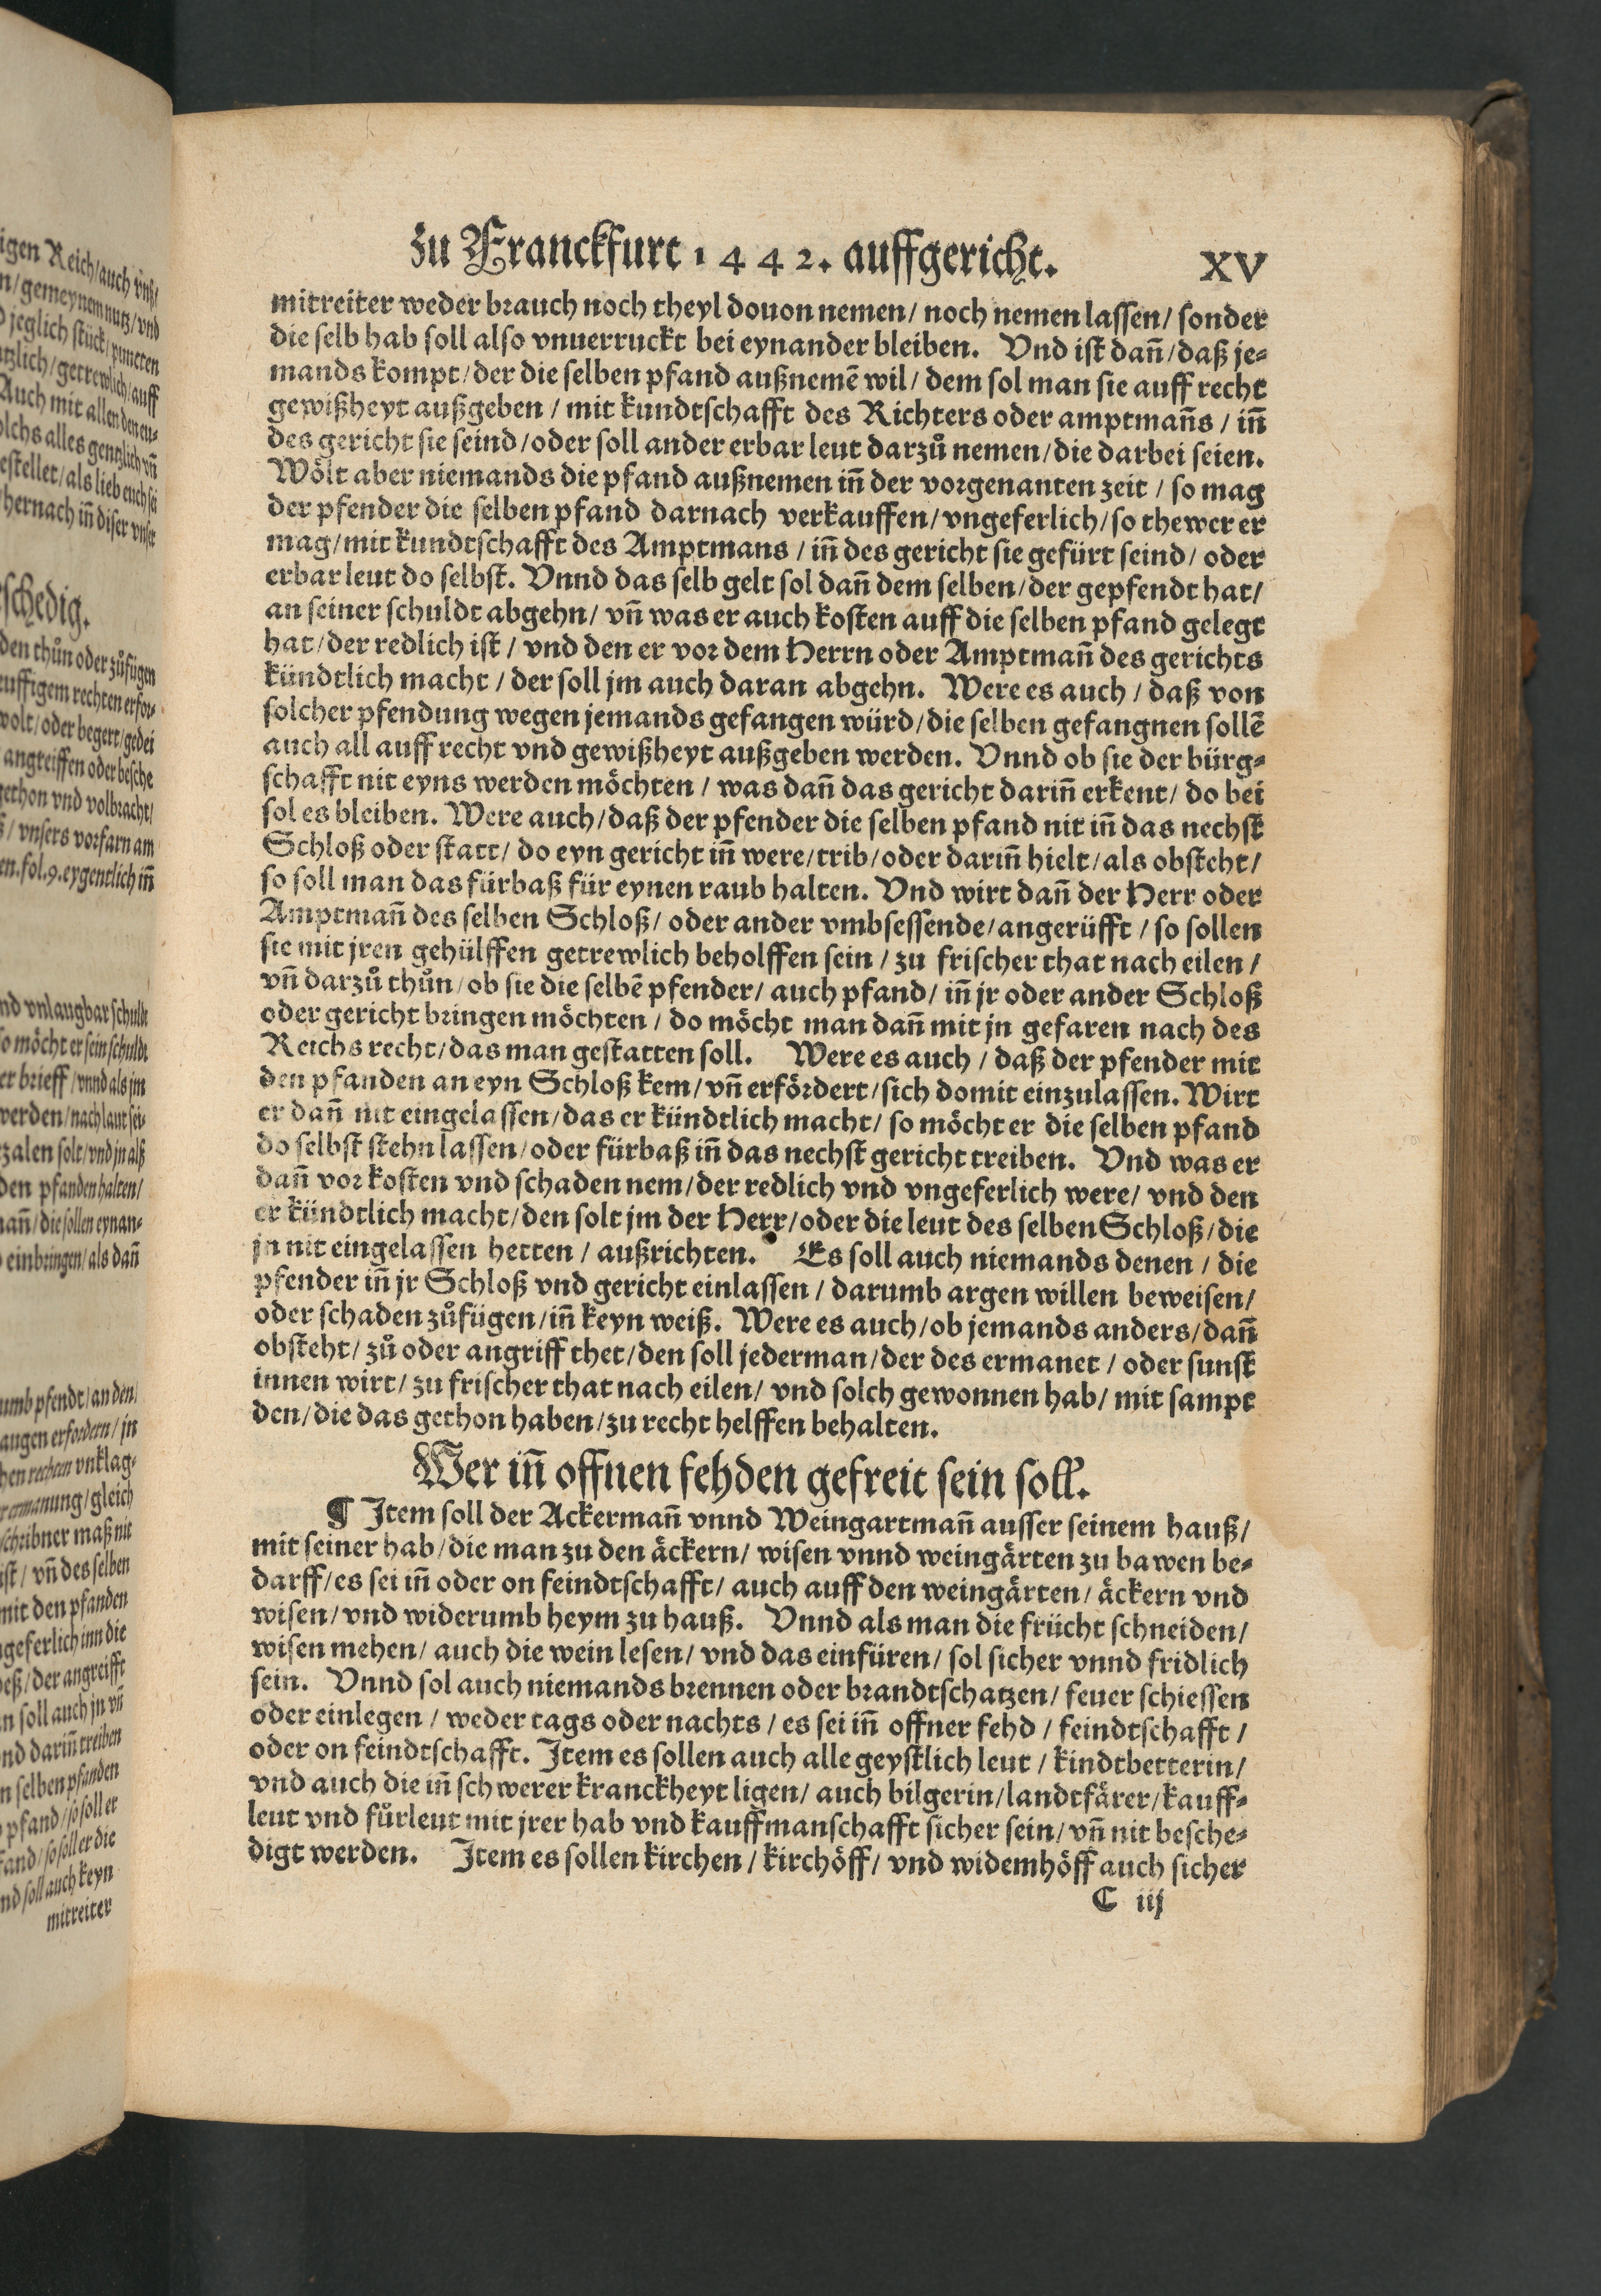 zu Franckfurt 1442. auffgericht. XV
mitreiter weder brauch noch theyl douon nemen / noch nemen lassen / sonder
die selb hab soll also vnuerruckt bei eynander bleiben. Vnd ist dañ / daß je⸗
mands kompt / der die selben pfand außnemē wil / dem sol man sie auff recht
gewißheyt außgeben / mit kundtschafft des Richters oder amptmañs / iñ
des gericht sie seind / oder soll ander erbar leut darzů nemen / die darbei seien.
Wölt aber niemands die pfand außnemen iñ der vorgenanten zeit / so mag
der pfender die selben pfand darnach verkauffen / vngeferlich / so thewer er
mag / mit kundtschafft des Amptmans / iñ des gericht sie gefürt seind / oder
erbar leut do selbst. Vnnd das selb gelt sol dañ dem selben / der gepfendt hat /
an seiner schuldt abgehn / vñ was er auch kosten auff die selben pfand gelegt
hat / der redlich ist / vnd den er vor dem Herrn oder Amptmañ des gerichts
kündtlich macht / der soll jm auch daran abgehn. Were es auch / daß von
solcher pfendung wegen jemands gefangen würd / die selben gefangnen sollē
auch all auff recht vnd gewißheyt außgeben werden. Vnnd ob sie der bürg⸗
schafft nit eyns werden möchten / was dañ das gericht dariñ erkent / do bei
sol es bleiben. Were auch / daß der pfender die selben pfand nit iñ das nechst
Schloß oder statt / do eyn gericht iñ were / trib / oder dariñ hielt / als obsteht /
so soll man das fürbaß für eynen raub halten. Vnd wirt dañ der Herr oder
Amptmañ des selben Schloß / oder ander vmbsessende / angerüfft / so sollen
sie mit jren gehülffen getrewlich beholffen sein / zu frischer that nach eilen /
vñ darzů thůn / ob sie die selbē pfender / auch pfand / iñ jr oder ander Schloß
oder gericht bringen möchten / do möcht man dañ mit jn gefaren nach des
Reichs recht / das man gestatten soll. Were es auch / daß der pfender mit
den pfanden an eyn Schloß kem / vñ erfördert / sich domit einzulassen. Wirt
er dañ nit eingelassen / das er kündtlich macht / so möcht er die selben pfand
do selbst stehn lassen / oder fürbaß iñ das nechst gericht treiben. Vnd was er
dañ vor kosten vnd schaden nem / der redlich vnd vngeferlich were / vnd den
er kündtlich macht / den solt jm der Herr / oder die leut des selben Schloß / die
jn nit eingelassen hetten / außrichten. Es soll auch niemands denen / die
pfender iñ jr Schloß vnd gericht einlassen / darumb argen willen beweisen /
oder schaden zůfügen / iñ keyn weiß. Were es auch / ob jemands anders / dañ
obsteht / zů oder angriff thet / den soll jederman / der des ermanet / oder sunst
innen wirt / zu frischer that nach eilen / vnd solch gewonnen hab / mit sampt
den / die das gethon haben / zu recht helffen behalten.
Wer iñ offnen fehden gefreit sein soll.
¶ Item soll der Ackermañ vnnd Weingartmañ ausser seinem hauß /
mit seiner hab / die man zu den äckern / wisen vnnd weingärten zu bawen be⸗
darff / es sei iñ oder on feindtschafft / auch auff den weingärten / äckern vnd
wisen / vnd widerumb heym zu hauß. Vnnd als man die frücht schneiden /
wisen mehen / auch die wein lesen / vnd das einfüren / sol sicher vnnd fridlich
sein. Vnnd sol auch niemands brennen oder brandtschatzen / feuer schiessen
oder einlegen / weder tags oder nachts / es sei iñ offner fehd / feindtschafft /
oder on feindtschafft. Item es sollen auch alle geystlich leut / kindtbetterin /
vnd auch die iñ schwerer kranckheyt ligen / auch bilgerin / landtfärer / kauff⸗
leut vnd fůrleut mit jrer hab vnd kauffmanschafft sicher sein / vñ nit besche⸗
digt werden. Item es sollen kirchen / kirchöff / vnd widemhöff auch sicher
C iij